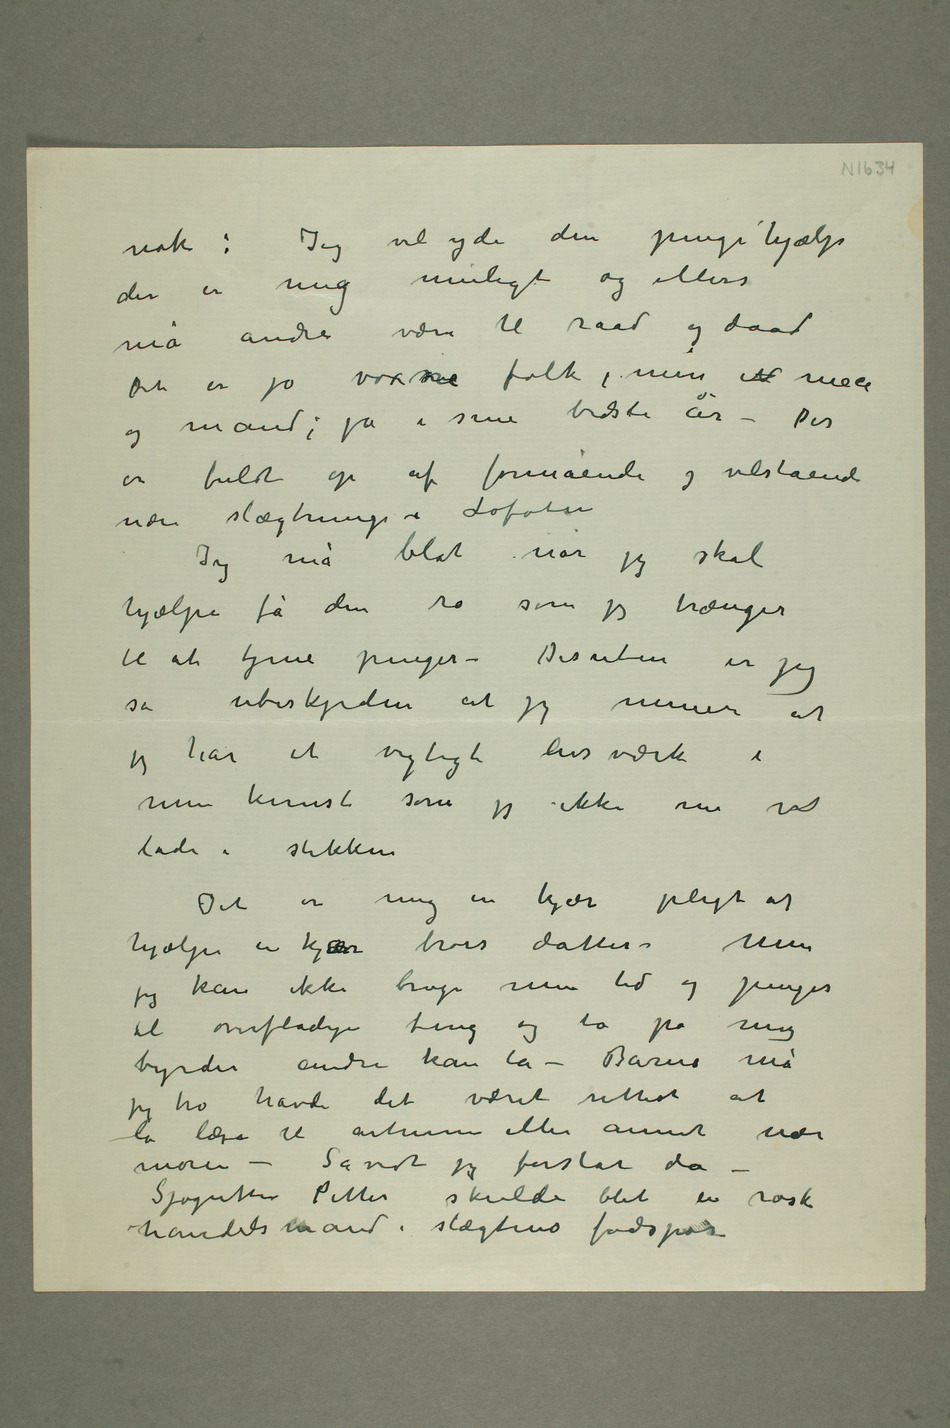 N1634
nok: Jeg vil yde den pengehjælp
der er mig muligt og ellers
må andre være til raad og daad
Det er jo voxne folk, min
og mand; ja i sine bedste år – Der
er fuldt op af formående og velstaende
nære slægtninge i Lofoten
Jeg må blot når jeg skal
hjælpe få den ro som jeg trænger
til at tjene penger – Desuten er jeg
så ubeskjeden at jeg mener at
jeg har et vigtigt livsværk i
min kunst som jeg ikke må
lade i stikken
Det er mig en kjær pligt at
hjælpe en kjær brors datter – Men
jeg kan ikke bruge min tid og penger
til overflødige ting og ta på mig
byrder andre kan ta – Barnet må
jeg tro havde det været rettest at
la læse til artium eller annet nær
moren – Såvidt jeg forstår da –
Sjøgutten Petter skulde blit en rask
handelsmand i slægtens fodspor